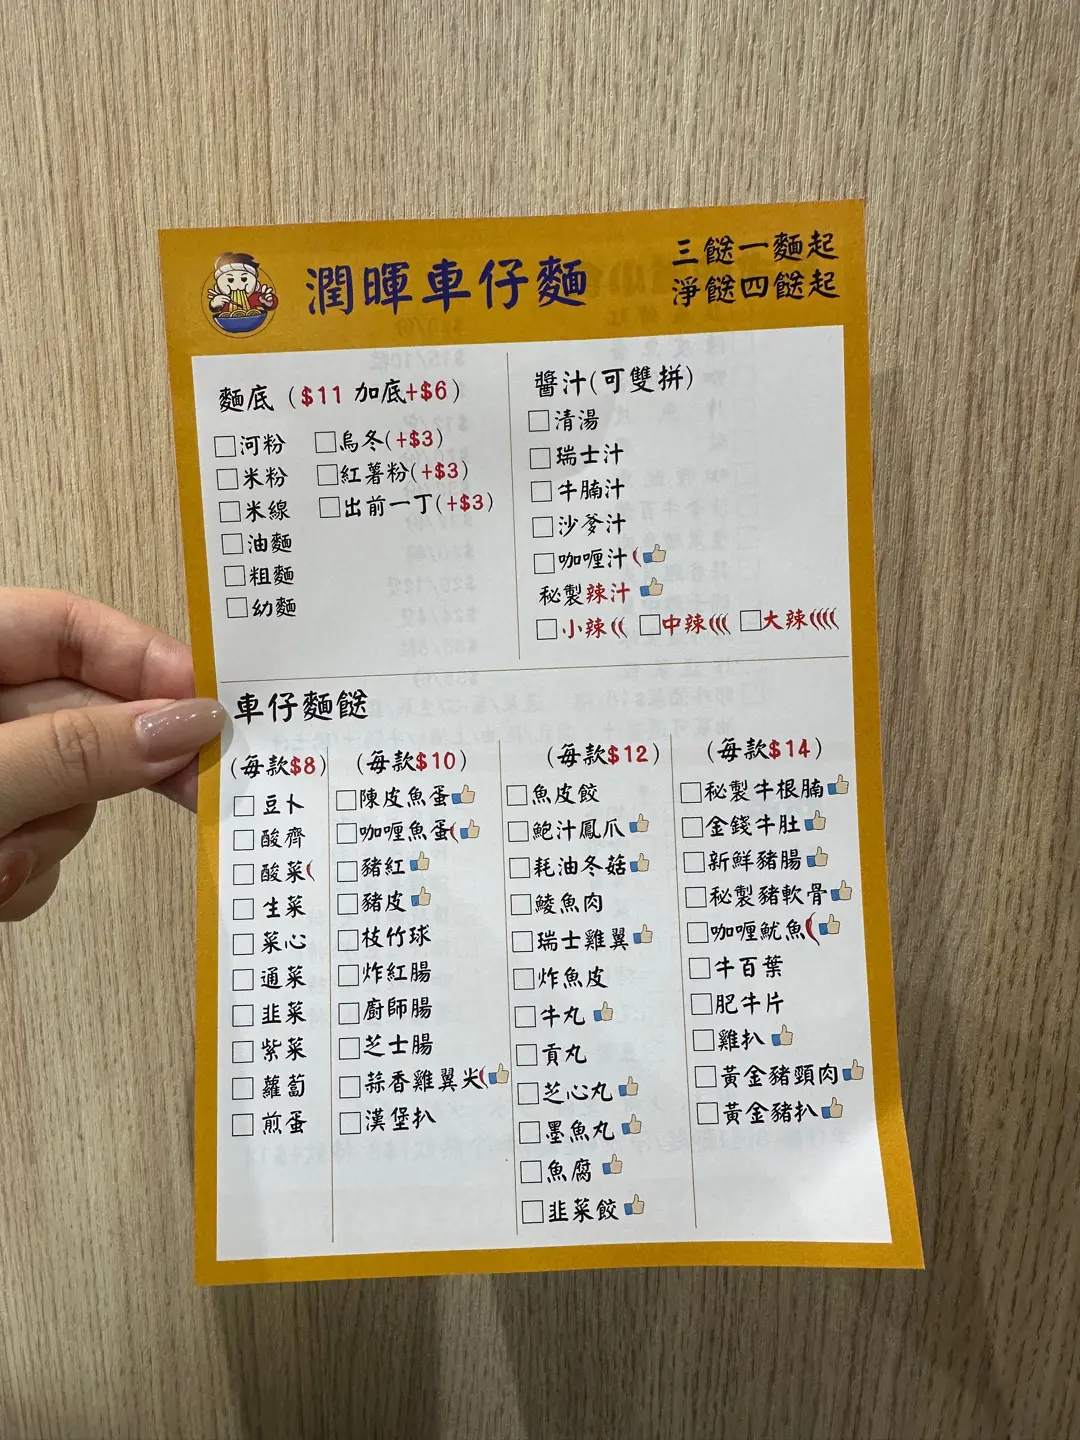 潤暉車仔麵
三餸一麵起
淨餸四餸起
麵底（$11 加底+$6）
河粉
米粉
米線
油麵
粗麵
幼麵
烏冬(+$3)
紅薯粉(+$3)
出前一丁(+$3)
醬汁(可雙拼)
清湯
瑞士汁
牛腩汁
沙爹汁
咖喱汁
秘製辣汁
小辣 中辣 大辣
車仔麵餸
(每款$8)
豆卜
酸齊
酸菜
生菜
菜心
通菜
韭菜
紫菜
蘿蔔
煎蛋
(每款$10)
陳皮魚蛋
咖喱魚蛋
豬紅
豬皮
枝竹球
炸紅腸
廚師腸
芝士腸
蒜香雞翼尖
漢堡扒
(每款$12)
魚皮餃
鮑汁鳳爪
耗油冬菇
鯪魚肉
瑞士雞翼
炸魚皮
牛丸
貢丸
芝心丸
墨魚丸
魚腐
韭菜餃
(每款$14)
秘製牛根腩
金錢牛肚
新鮮豬腸
秘製豬軟骨
咖喱魷魚
牛百葉
肥牛片
雞扒
黃金豬頸肉
黃金豬扒